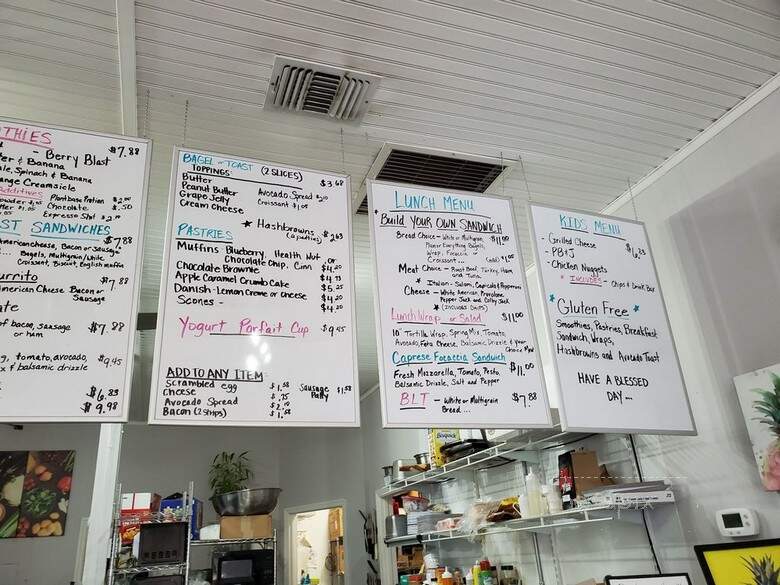 THIES
- Berry Blast $7.88
er & Banana
ale, Spinach & Banana
ange Creamsicle
Additives
Plantbase Protien $2.00
Chocolate $.50
Expresso Shot $2.00
ST SANDWICHES
$7.88
American cheese, Bacon or Sausage
Bagels, Multigrain/White
Croissant, Biscuit, English muffin
urrito $7.88
American Cheese Bacon or
Sausage
ate
of bacon, sausage $7.88
or ham
g, tomato, avocado, $9.45
x & balsamic drizzle
$6.83
$9.98
BAGEL or TOAST (2 SLICES)
TOPPINGS: $3.68
Butter
Peanut Butter
Grape Jelly
Cream Cheese
Avocado Spread
Croissant $1.05
* Hashbrowns $2.63
(2 patties)
PASTRIES
Muffins - Blueberry, Health Nut, or
Chocolate Chip, Cinn $4.20
Chocolate Brownie $4.73
Apple Caramel Crumb Cake $5.25
Danish - Lemon Creme or Cheese $4.20
Scones - $4.20
Yogurt Parfait Cup $9.45
ADD TO ANY ITEM
Scrambled egg $1.58
Cheese $.75
Avocado Spread $2.10
Bacon (2 strips) $1.58
Sausage $1.58
Patty
LUNCH MENU
* Build YOUR OWN SANDWICH
$11.00
Bread Choice - White or Multigrain,
Plain or Everything Bagels,
Wrap, Focaccia or
Croissant... (add) $1.00
Meat Choice - Roast Beef, Turkey, Ham,
and Tuna
* Italian - Salami, Capicola & Pepperoni
Cheese - White American, Provolone,
Pepper Jack and Colby Jack
* (INCLUDES CHIPS)
Lunch Wrap or Salad $11.00
10" Tortilla Wrap, Spring Mix, Tomato,
Avocado, Feta Cheese, Balsamic Drizzle & your
Choice Meat
Caprese Focaccia Sandwich
$11.00
Fresh Mozzarella, Tomato, Pesto,
Balsamic Drizzle, Salt and Pepper
BLT - White or Multigrain $7.88
Bread...
KIDS MENU
- Grilled Cheese $6.83
- PB+J
- Chicken Nuggets
* INCLUDES - Chips & Drink Bar
* Gluten Free *
Smoothies, Pastries, Breakfast
Sandwich, Wraps,
Hashbrowns and Avocado Toast
HAVE A BLESSED
DAY...